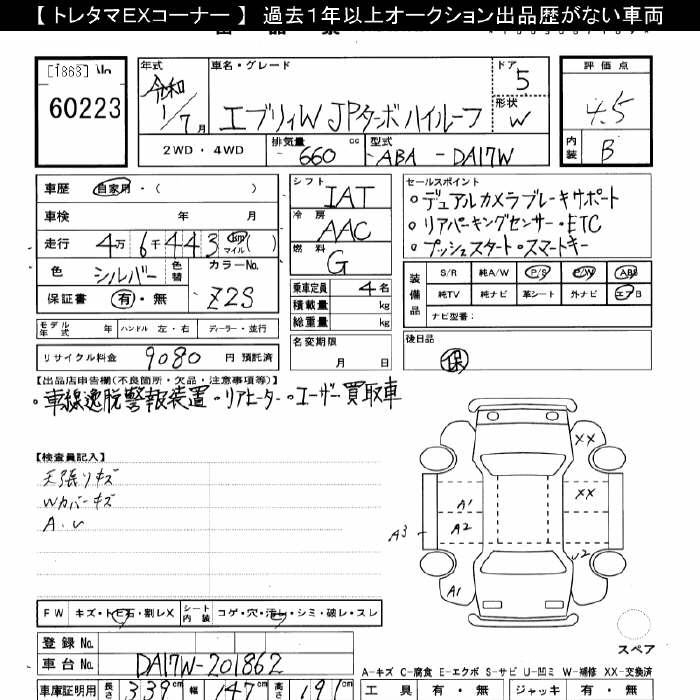 【トレタマEXコーナー】 過去1年以上オークション出品歴がない車両
[1863]
60223
年式 令和 1/7月
車名・グレード エブリィW JPターボ ハイルーフ
ドア 5
形状 W
2WD・4WD
排気量 660 cc
型式 ABA-DA17W
評価点 4.5
内装 B
車歴 自家用・( )
車検 年 月
走行 4万6千443 km マイル( )
色 シルバー 色替 カラーNo. Z2S
保証書 有・無
モデル年式 年 ハンドル 左・右 ディーラー・並行
リサイクル料金 9080 円 預託済
シフト IAT
冷房 AAC
燃料 G
乗車定員 4名
積載量 kg
総重量 kg
名変期限 月 日
セールスポイント
○デュアルカメラブレーキサポート
○リアパーキングセンサー・ETC
○プッシュスタート○スマートキー
装備品 S/R 純A/W P/S P/W ABS
純TV 純ナビ 革シート 外ナビ エアB
ナビ型番:
後日品
保
【出品店申告欄(不良箇所・欠品・注意事項等)】
・車線逸脱警報装置・リアヒーター・ユーザー買取車
【検査員記入】
天張リキズ
Wカバーキズ
A.U
XX
XX
A1
A2
A3
U2
A1
スペア
FW キズ・トビ石・割レX シート内装 コゲ・穴・汚レ・シミ・破レ・スレ
登録No.
車台No. DA17W-201862
A-キズ C-腐食 E-エクボ S-サビ U-凹ミ W-補修 XX-交換済
車庫証明用 長さ 339cm 幅 147cm 高さ 191cm
工具 有・無 ジャッキ 有・無